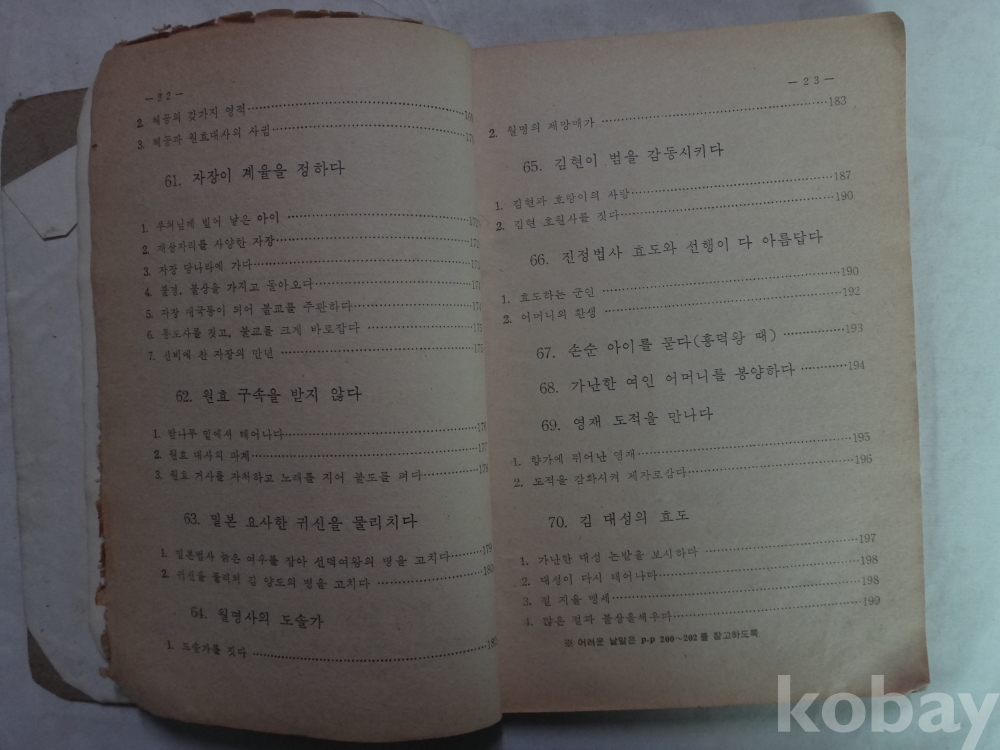 — 22 —
2. 혜공의 갖가지 영적
3. 혜공과 원효대사의 사귐
61. 자장이 계율을 정하다
1. 부처님께 빌어 낳은 아이
2. 재상자리를 사양한 자장
3. 자장 당나라에 가다
4. 불경, 불상을 가지고 돌아오다
5. 자장 대국통이 되어 불교를 주관하다
6. 통도사를 짓고, 불교를 크게 바로잡다
7. 신비에 찬 자장의 만년
62. 원효 구속을 받지 않다
1. 밤나무 밑에서 태어나다
2. 원효 대사의 파계
3. 원효 거사를 자처하고 노래를 지어 불도를 펴다
63. 밀본 요사한 귀신을 물리치다
1. 밀본법사 늙은 여우를 잡아 선덕여왕의 병을 고치다 179
2. 귀신을 물리쳐 김 양도의 병을 고치다
64. 월명사의 도솔가
1. 도솔가를 짓다
— 23 —
2. 월명의 제망매가 183
65. 김현이 범을 감동시키다
1. 김현과 호랑이의 사랑 187
2. 김현 호원사를 짓다 190
66. 진정법사 효도와 선행이 다 아름답다
1. 효도하는 군인 190
2. 어머니의 환생 192
67. 손순 아이를 묻다(흥덕왕 때) 193
68. 가난한 여인 어머니를 봉양하다 194
69. 영재 도적을 만나다
1. 향가에 뛰어난 영재 195
2. 도적을 감화시켜 제자로삼다 196
70. 김 대성의 효도
1. 가난한 대성 논밭을 보시하다 197
2. 대성이 다시 태어나다 198
3. 절 지을 맹세 198
4. 많은 절과 불상을세우다 199
※ 어려운 낱말은 p·p 200～202를 참고하도록
kobay